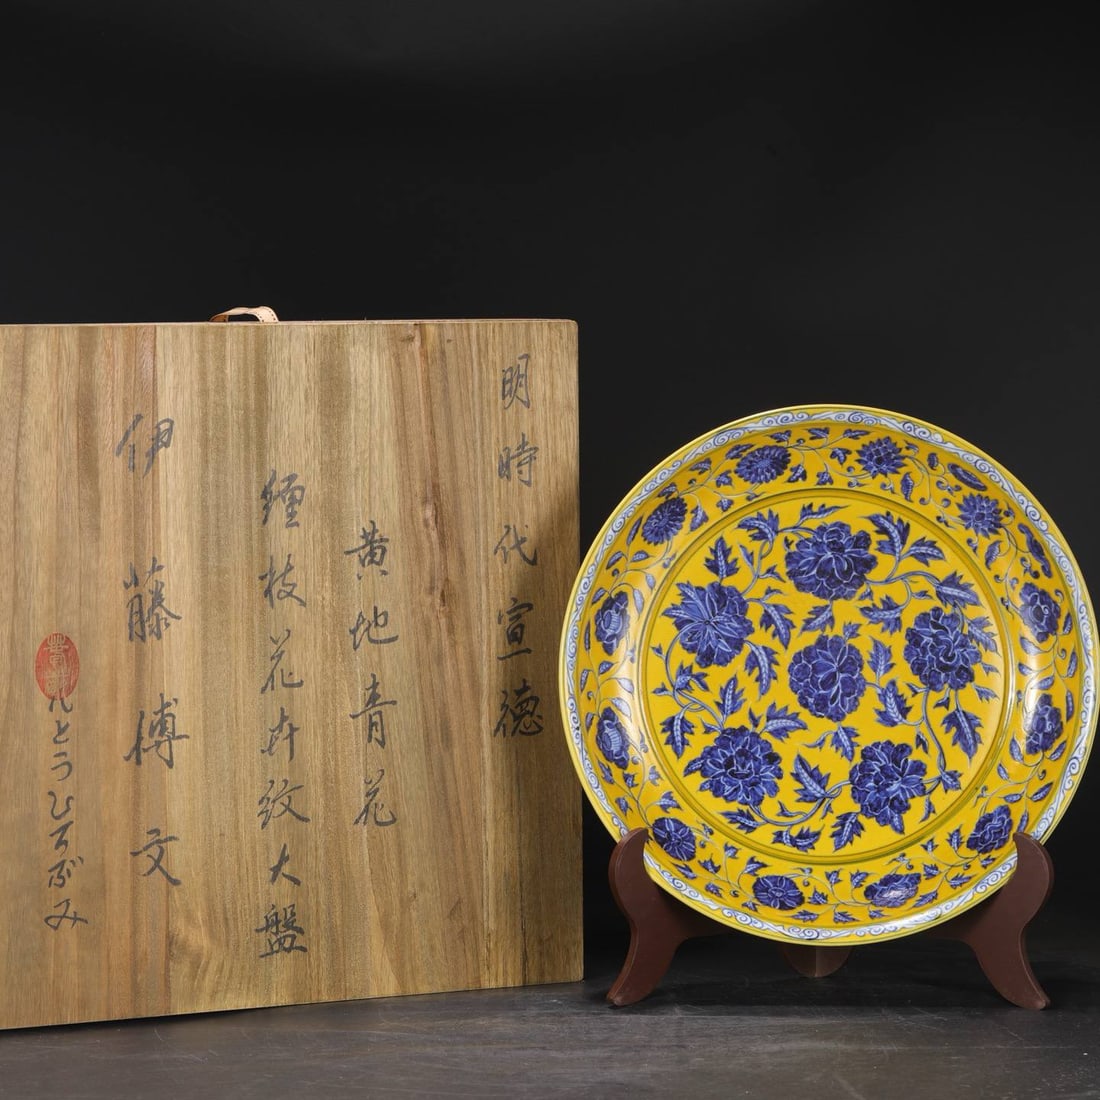 明時代宣德
黄地青花
纏枝花卉紋大盤
伊藤博文
いとうひろぶみ